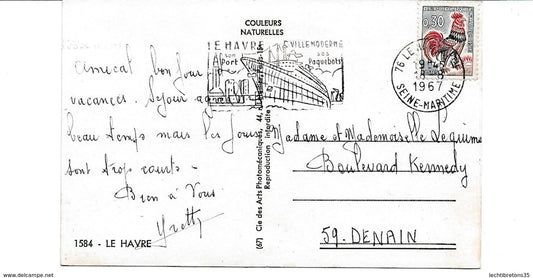 COULEURS
NATURELLES
LE HAVRE
son
Port
VILLE MODERNE
ses
Paquebots
0,30
76 LE
1967
SEINE-MARITIME
Amical bonjour
vacances. Séjour
beau temps mais les jours
sont trop courts.
Bien à Vous
Yvette
Madame et Mademoiselle Lequime
Boulevard Kennedy
59. DENAIN
1584 - LE HAVRE
(67) Cie des Arts Photomécaniques, 44,
Reproduction interdite
delcampe.net
lechtibretons35